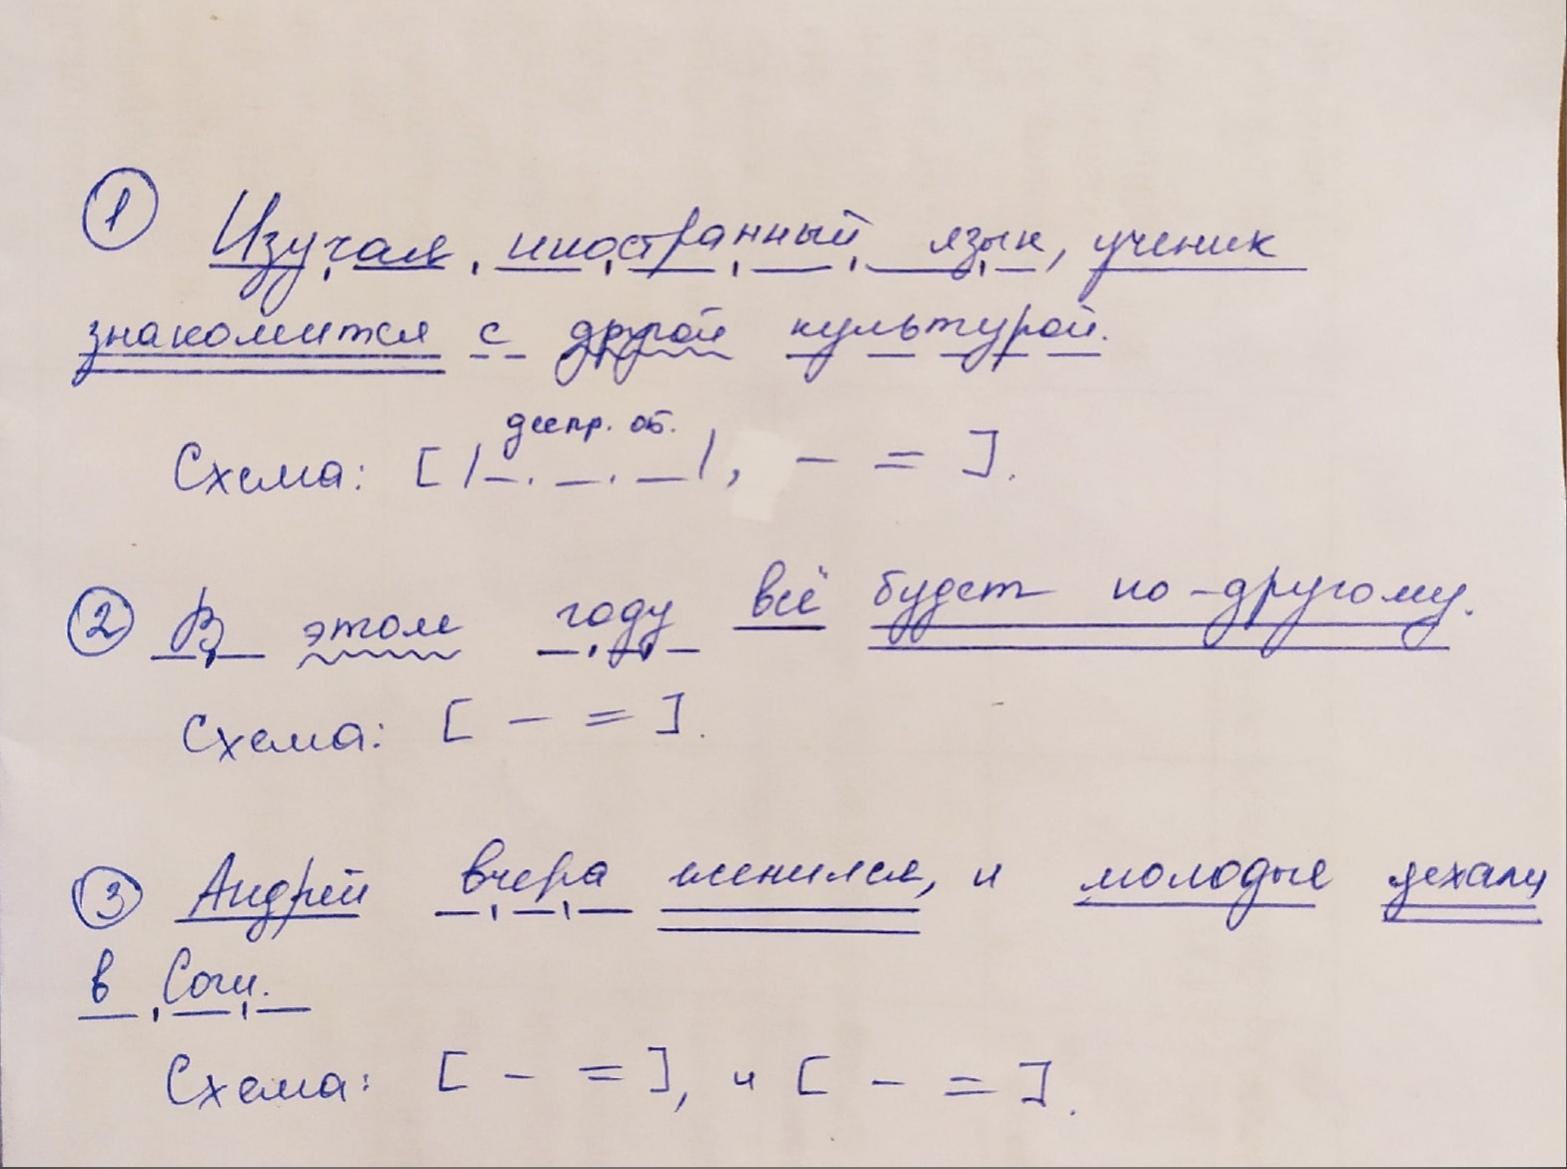 1 Изучая иностранный язык, ученик
знакомится с другой культурой.
деепр. об.
Схема: [ |_._._|, – = ].
2 В этом году всё будет по-другому.
Схема: [ – = ].
3 Андрей вчера женился, и молодые уехали
в Сочи.
Схема: [ – = ], и [ – = ].